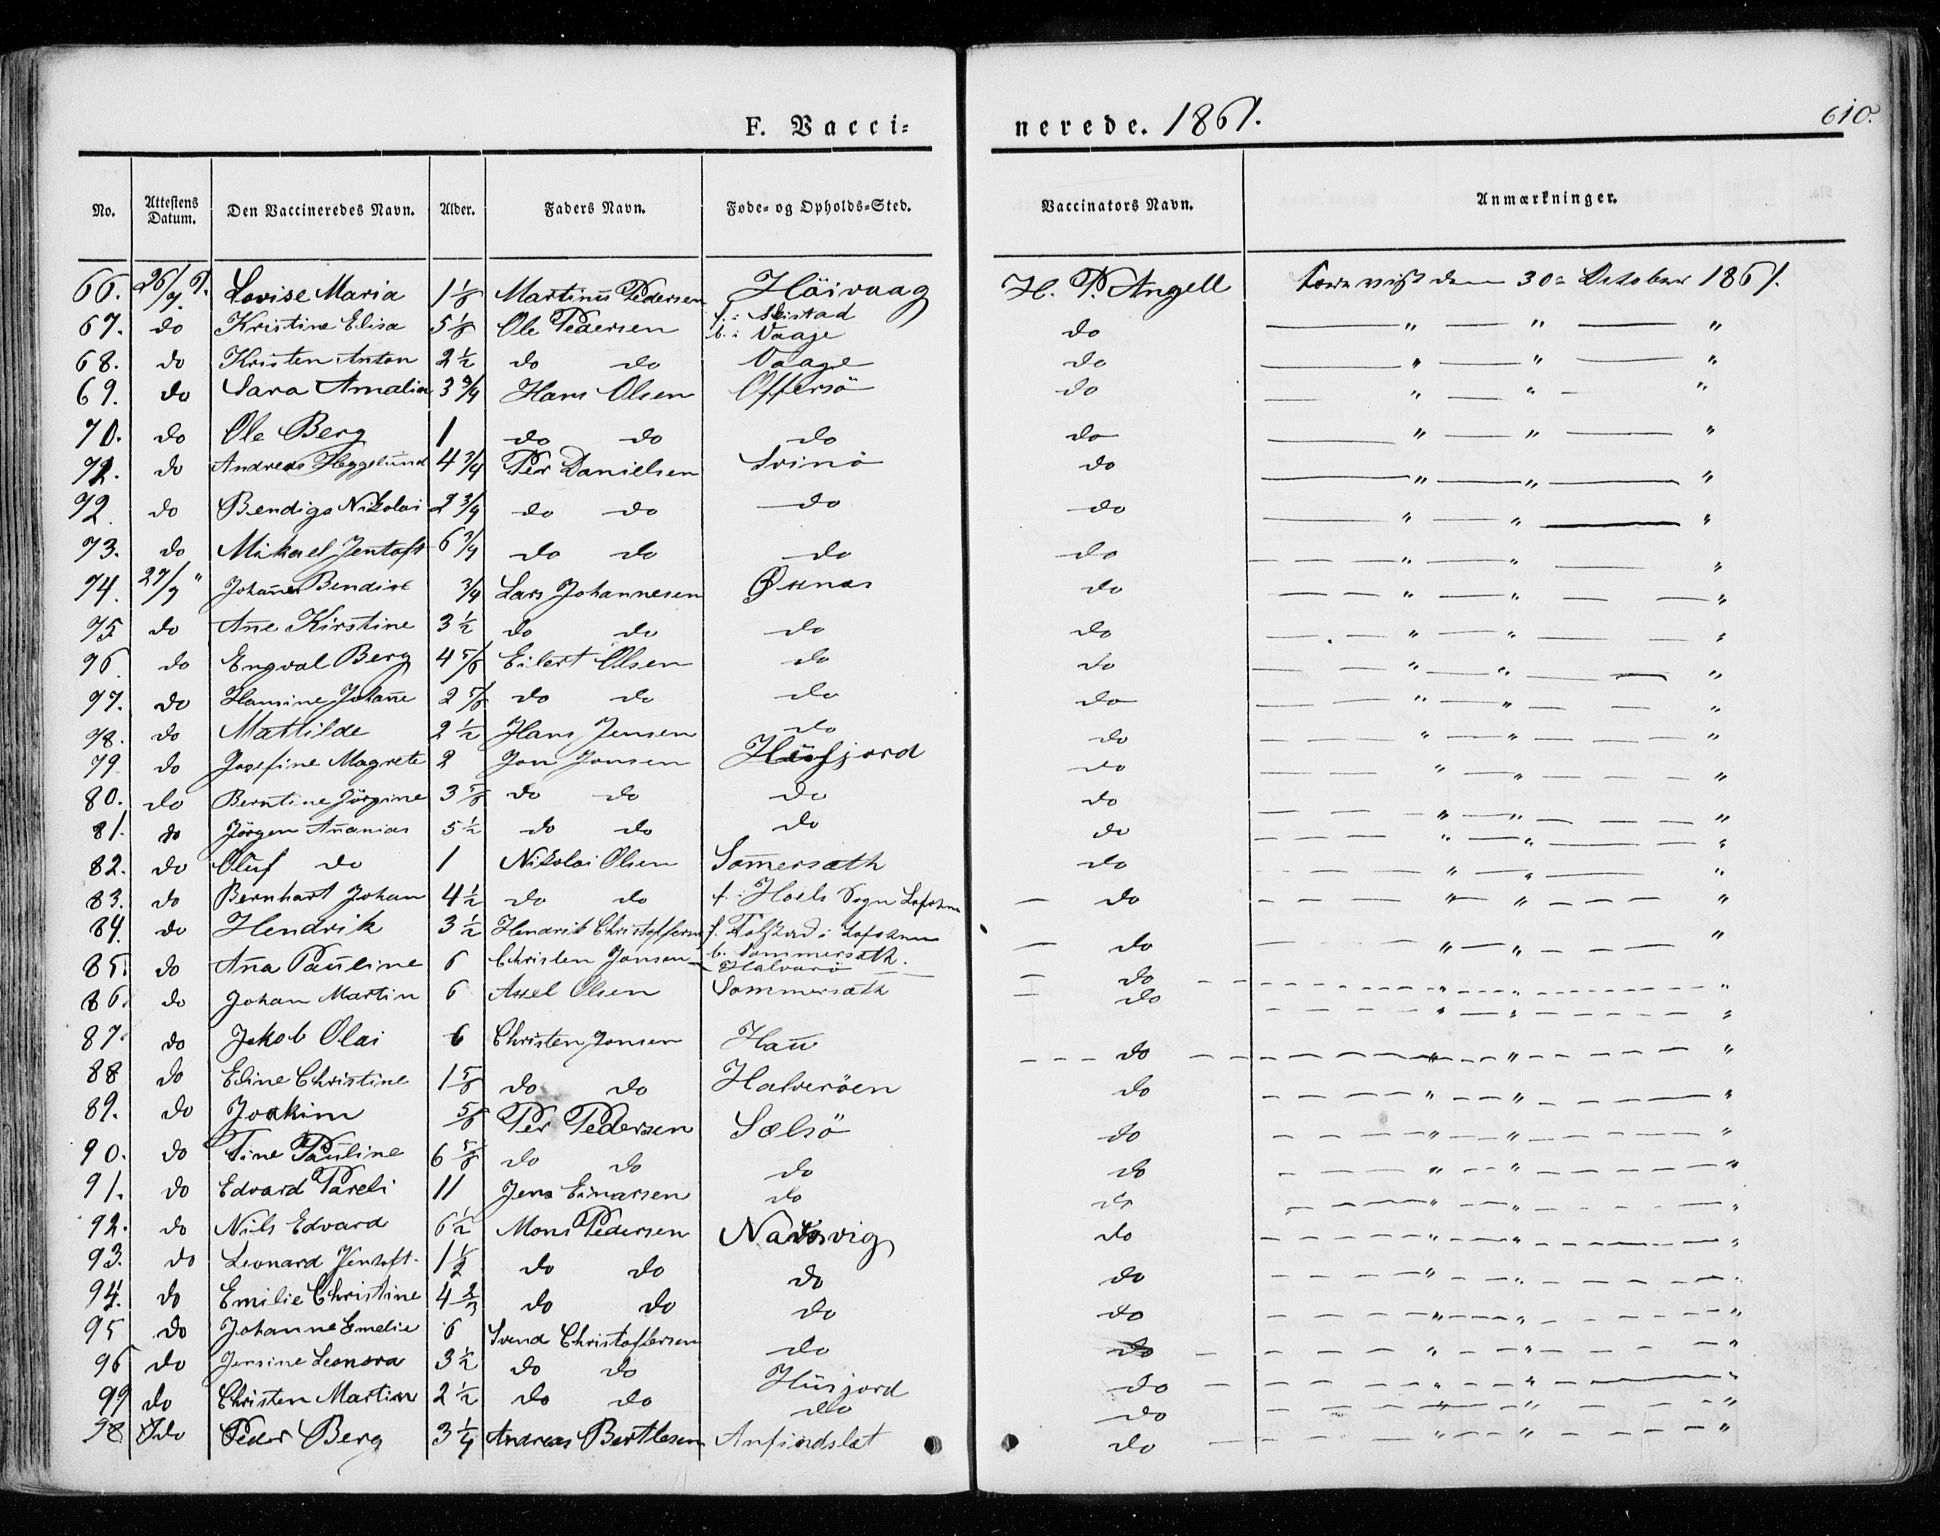 F. Vacci= nerede. 1861. 610.
No. Attestens Datum. Den Vaccineredes Navn. Alder. Faders Navn. Føde- og Opholds-Sted. Vaccinators Navn. Anmærkninger.
66. 26/7 61. Lovise Maria 1 1/6 Martinus Pedersen Höivaag H. P. Angell Forevist den 30 October 1861.
67. do Kristine Elisa 5 1/6 Ole Pedersen f.: Skistad b.: Vaaje do — " — " — "
68. do Kristen Anton 2 1/2 do do Vaage do — " — " — "
69. do Sara Amalia 3 3/4 Hans Olsen Offersö do — " — " - "
70. do Ole Berg 1 do do do do — " — " — "
71. do Andreas Heggelund 4 3/4 Per Danielsen Svinö do — " — " — "
72. do Bendigs Nikolai 2 3/4 do do do do — " — " — "
73. do Mikael Jentoft 6 3/4 do do do do — " — " — "
74. 27/7 " Johanes Bendix 3/4 Lars Johannesen Öxnæs do — " — " — "
75. do Ane Kirstine 3 1/2 do do do do — " — " — "
76. do Engval Berg 4 5/6 Eilert Olsen do do — " — " — "
77. do Hansine Johane 2 5/6 do do do do — " — " — "
78. do Mattilde 2 1/2 Hans Jensen do do — " — " — "
79. do Josefine Magrete 2 Jon Jonsen Husfjord do — " — " — "
80. do Berntine Jörgine 3 5/6 do do do do — " — " — "
81. do Jörgen Ananias 5 1/2 do do do do — " — " — "
82. do Oluf do 1 Nikolai Olsen Somersæth do — " — " — "
83. do Bernhart Johan 4 1/2 do do f.: Hoels Sogn Lofoten do — " — " — "
84. do Hendrik 3 1/2 Hendrik Christoffersen f. i Lofoten b. Sommersæth. do — " — " — "
85. do Ana Pauline 6 Christen Jonsen Halvarö do — " — " — "
86. do Johan Martin 6 Axel Olsen Sommersæth do — " — " — "
87. do Jakob Olai 6 Christen Jonsen Hau do — " — " — "
88 do Eline Christine 1 5/6 do do Halveröen do — " — " — "
89. do Joakim 5/6 Per Pedersen Sælsö do — " — " — "
90. do Tine Pauline 6 5/6 do do do do — " — " — "
91. do Edvard Pareli 11 Jens Einarsen do do — " — " — "
92. do Nils Edvard 6 1/2 Mons Pedersen vig do — " — " — "
93. do Leonard Jentoft 1 1/2 do do do do — " — " — "
94. do Emilie Christine 4 2/3 do do do do — " — " — "
95 do Johanne Emelie 6 Svend Christoffersen do do — " — " — "
96 do Jensine Leonora 3 1/2 do do Husjord do — " — " — "
97 do Christen Martin 2 1/2 do do do do — " — " — "
98 do Peder Berg 3 1/4 Andreas Bertlesen Anfindslet do — " — " — "